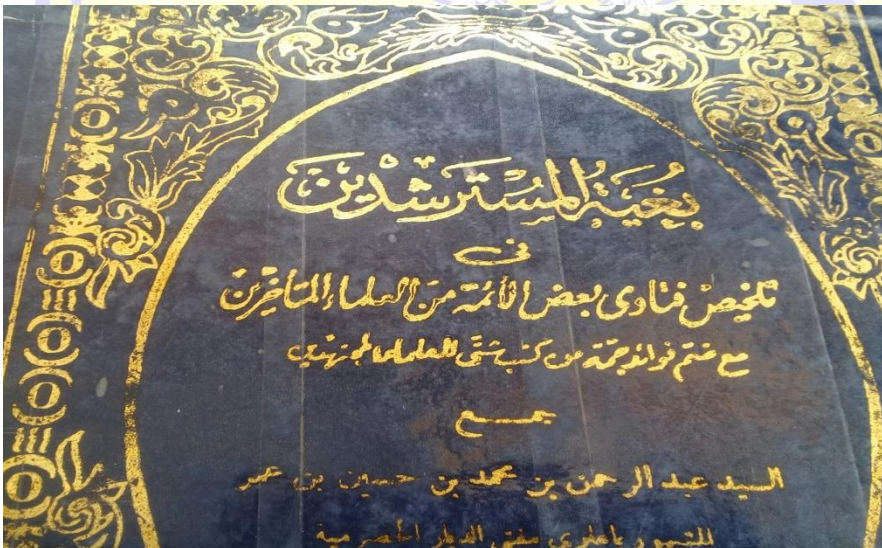 بُغْيَةُ المُسْتَرْشِدِينَ
فى
تلخيص فتاوى بعض الأئمة من العلماء المتأخرين
مع ضم فوائد جمة من كتب شتى للعلماء المجتهدين
جمع
السيد عبد الرحمن بن محمد بن حسين بن عمر
المشهور باعلوى مفتى الديار الحضرمية